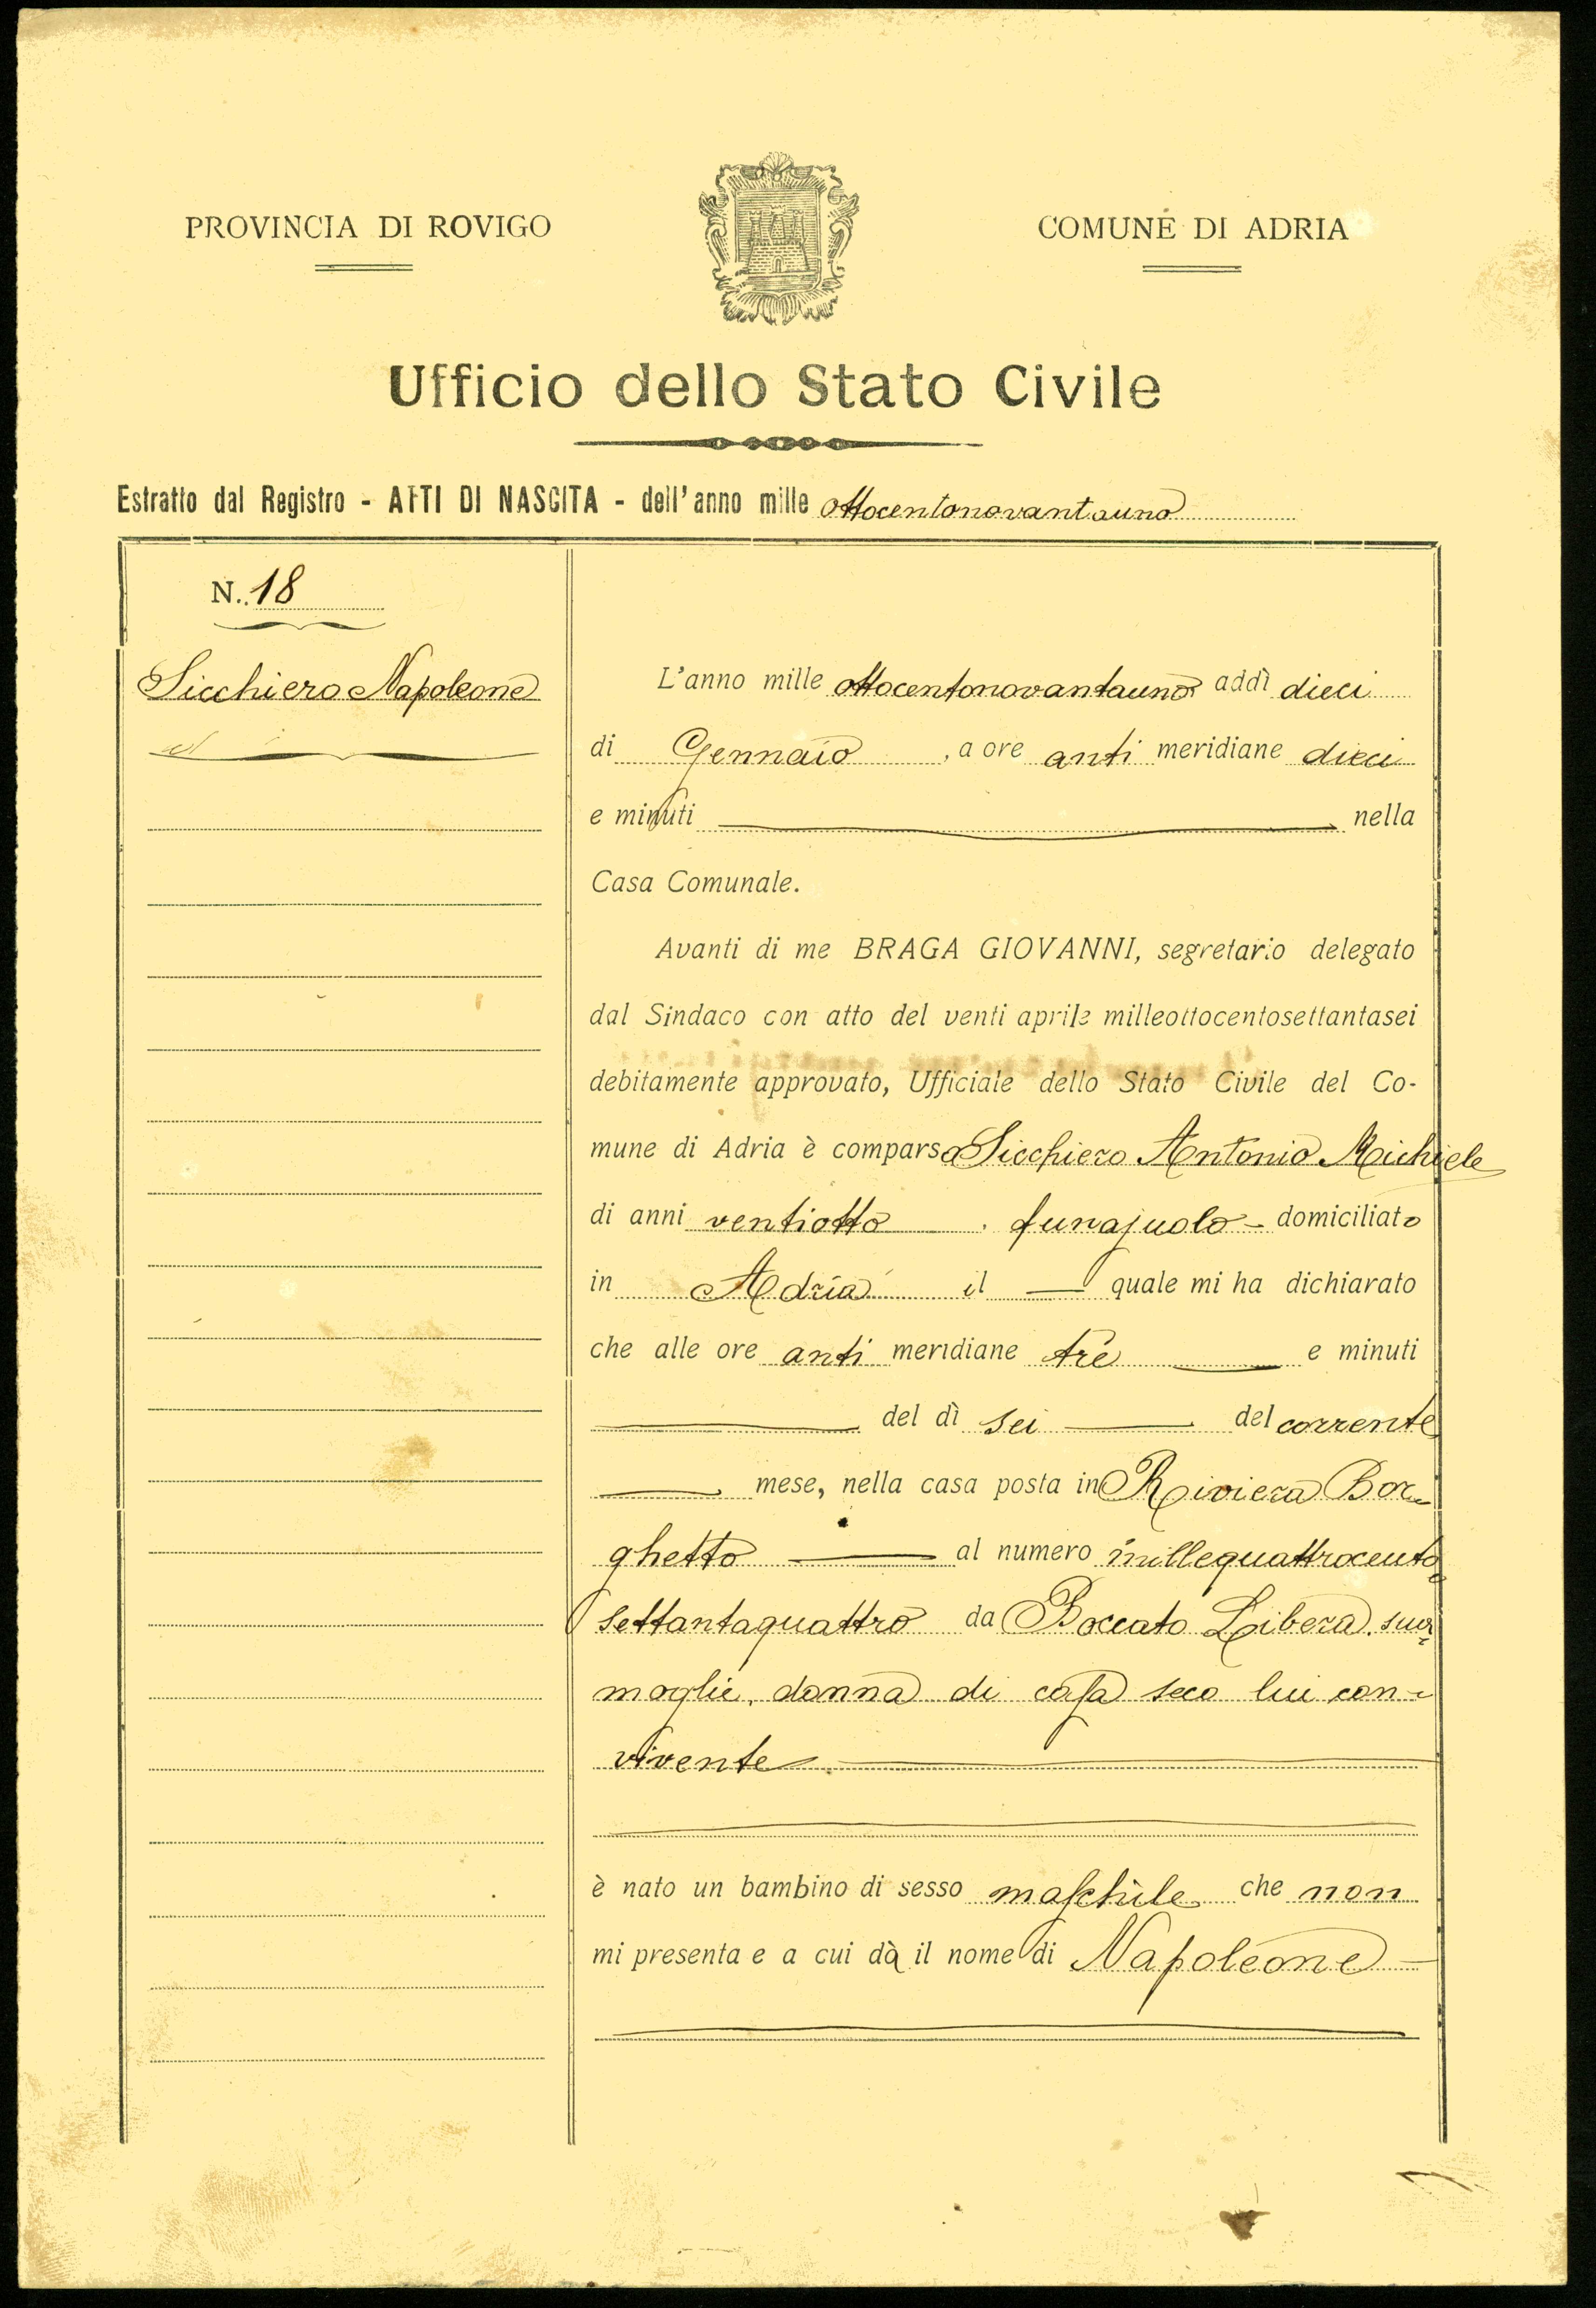 PROVINCIA DI ROVIGO
COMUNE DI ADRIA
Ufficio dello Stato Civile
Estratto dal Registro - ATTI DI NASCITA - dell'anno mille ottocentonovantauno
N. 18
Sicchiero Napoleone
L'anno mille ottocentonovantauno addì dieci
di Gennaio, a ore anti meridiane dieci
e minuti nella
Casa Comunale.
Avanti di me BRAGA GIOVANNI, segretario delegato
dal Sindaco con atto del venti aprile milleottocentosettantasei
debitamente approvato, Ufficiale dello Stato Civile del Co-
mune di Adria è comparso Sicchiero Antonio Michiele
di anni ventiotto, funajuolo - domiciliato
in Adria il quale mi ha dichiarato
che alle ore anti meridiane tre e minuti
del dì sei del corrente
mese, nella casa posta in Riviera Bor-
ghetto al numero millequattrocento
settantaquattro da Boccato Libera, sua
moglie, donna di casa seco lui con-
vivente
è nato un bambino di sesso maschile che non
mi presenta e a cui dà il nome di Napoleone